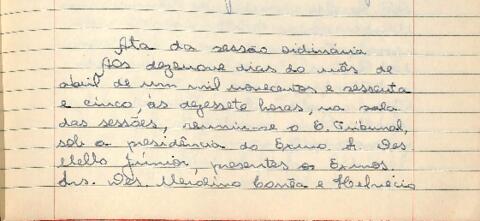 Ata da sessão ordinária
Aos dezenove dias do mês de
abril de um mil novecentos e sessenta
e cinco, às dezessete horas, na sala
das sessões, reuniu-se o E. Tribunal,
sob a presidência do Exmo. Sr. Des.
Mello Júnior, presentes os Exmos.
Srs. Des. Merolino Corrêa e Helvécio